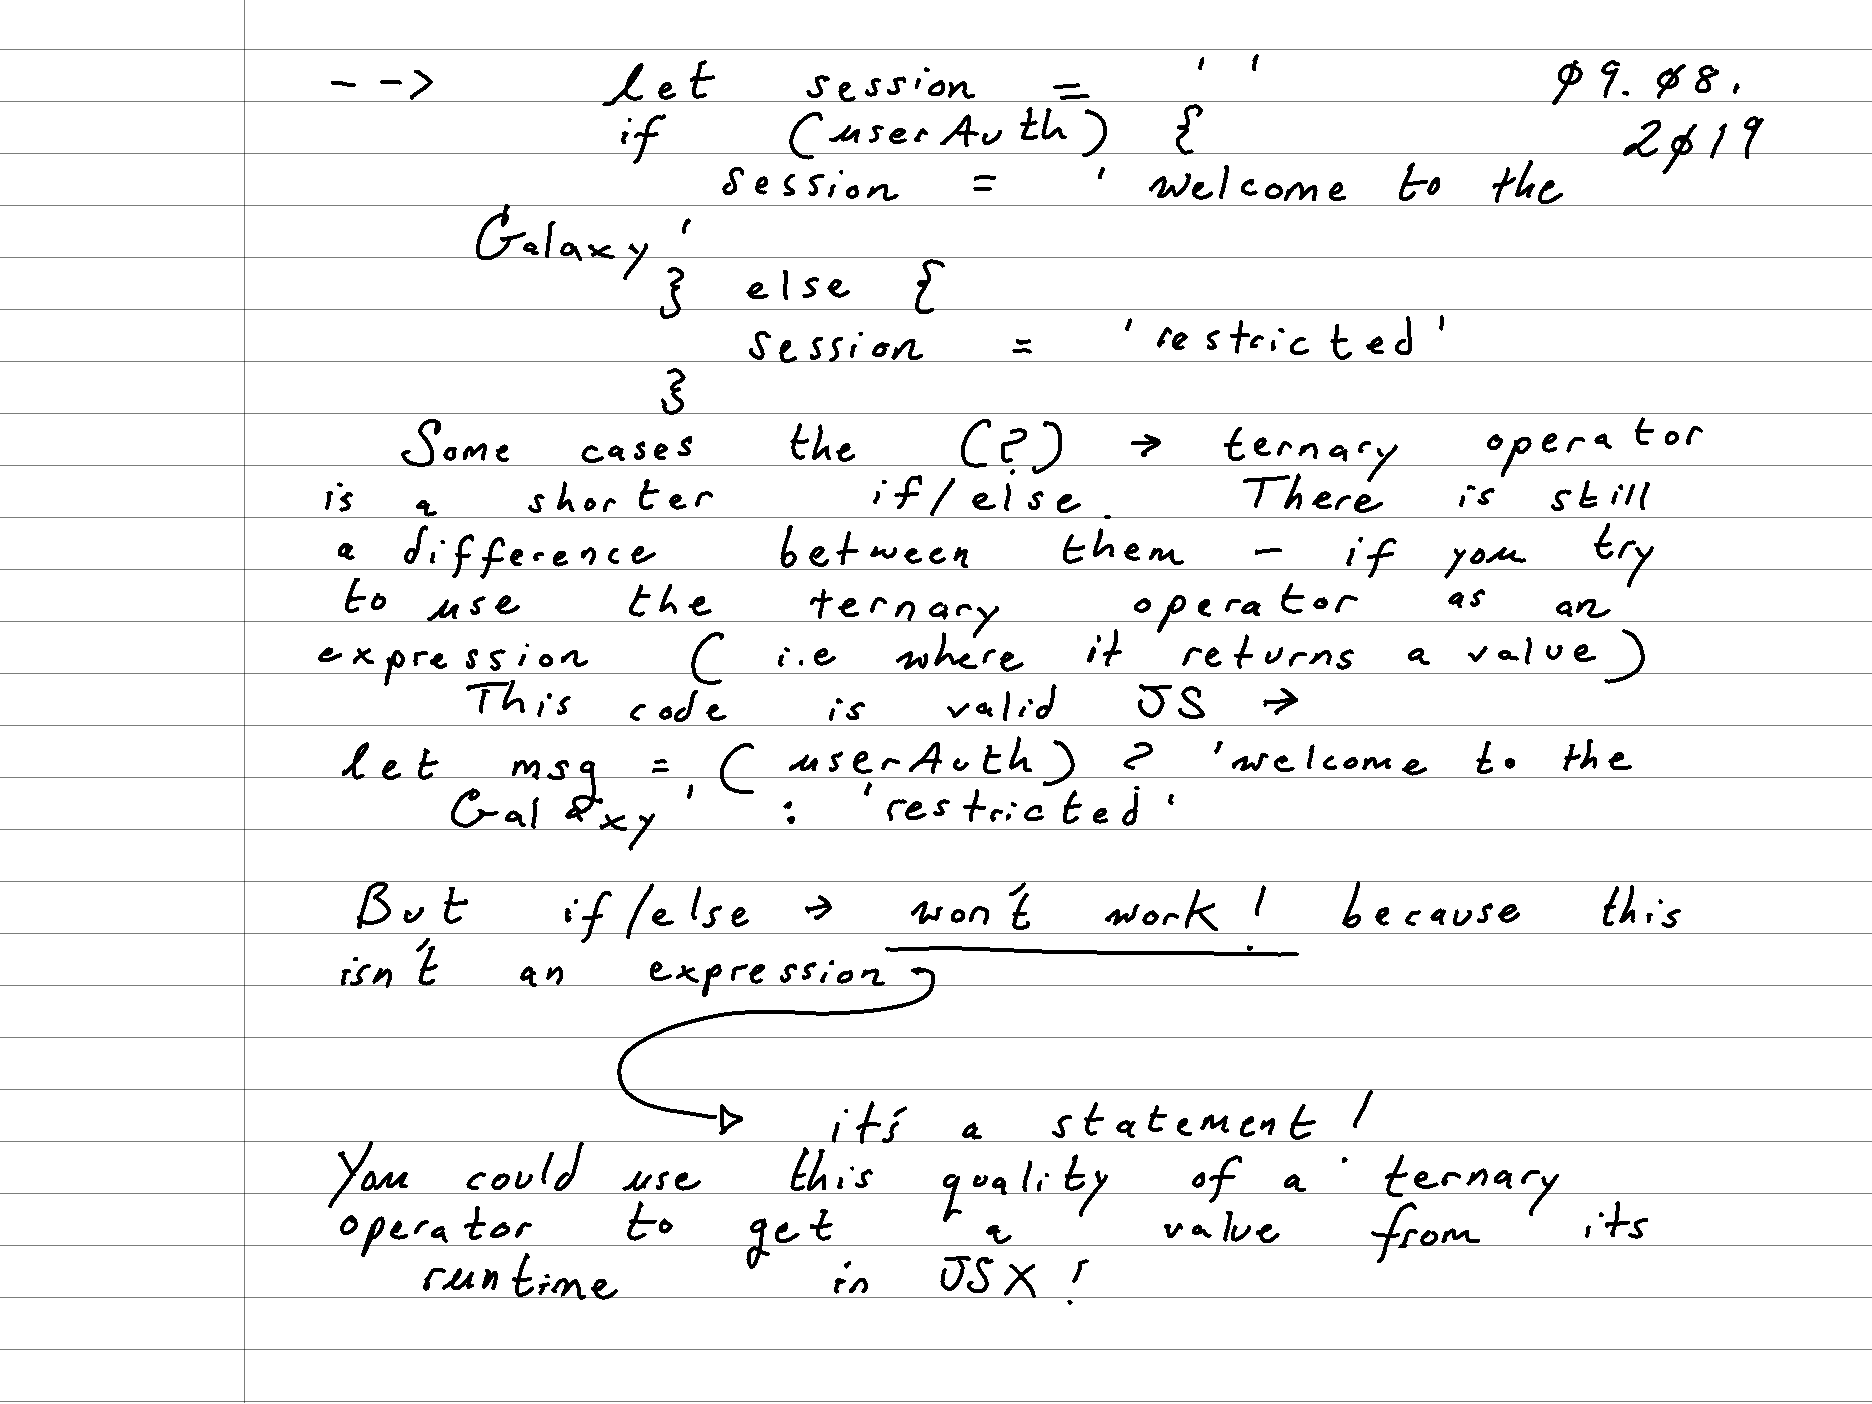 --> let session = ' ' ø9. ø8.
if (userAuth) { 2ø19
session = 'welcome to the
Galaxy'
} else {
session = 'restricted'
}
Some cases the (?) → ternary operator
is a shorter if/else. There is still
a difference between them – if you try
to use the ternary operator as an
expression (i.e where it returns a value)
This code is valid JS →
let msg = (userAuth) ? 'welcome to the
Galaxy' : 'restricted'
But if/else → won't work! because this
isn't an expression
it's a statement!
You could use this quality of a ternary
operator to get a value from its
runtime in JSX!